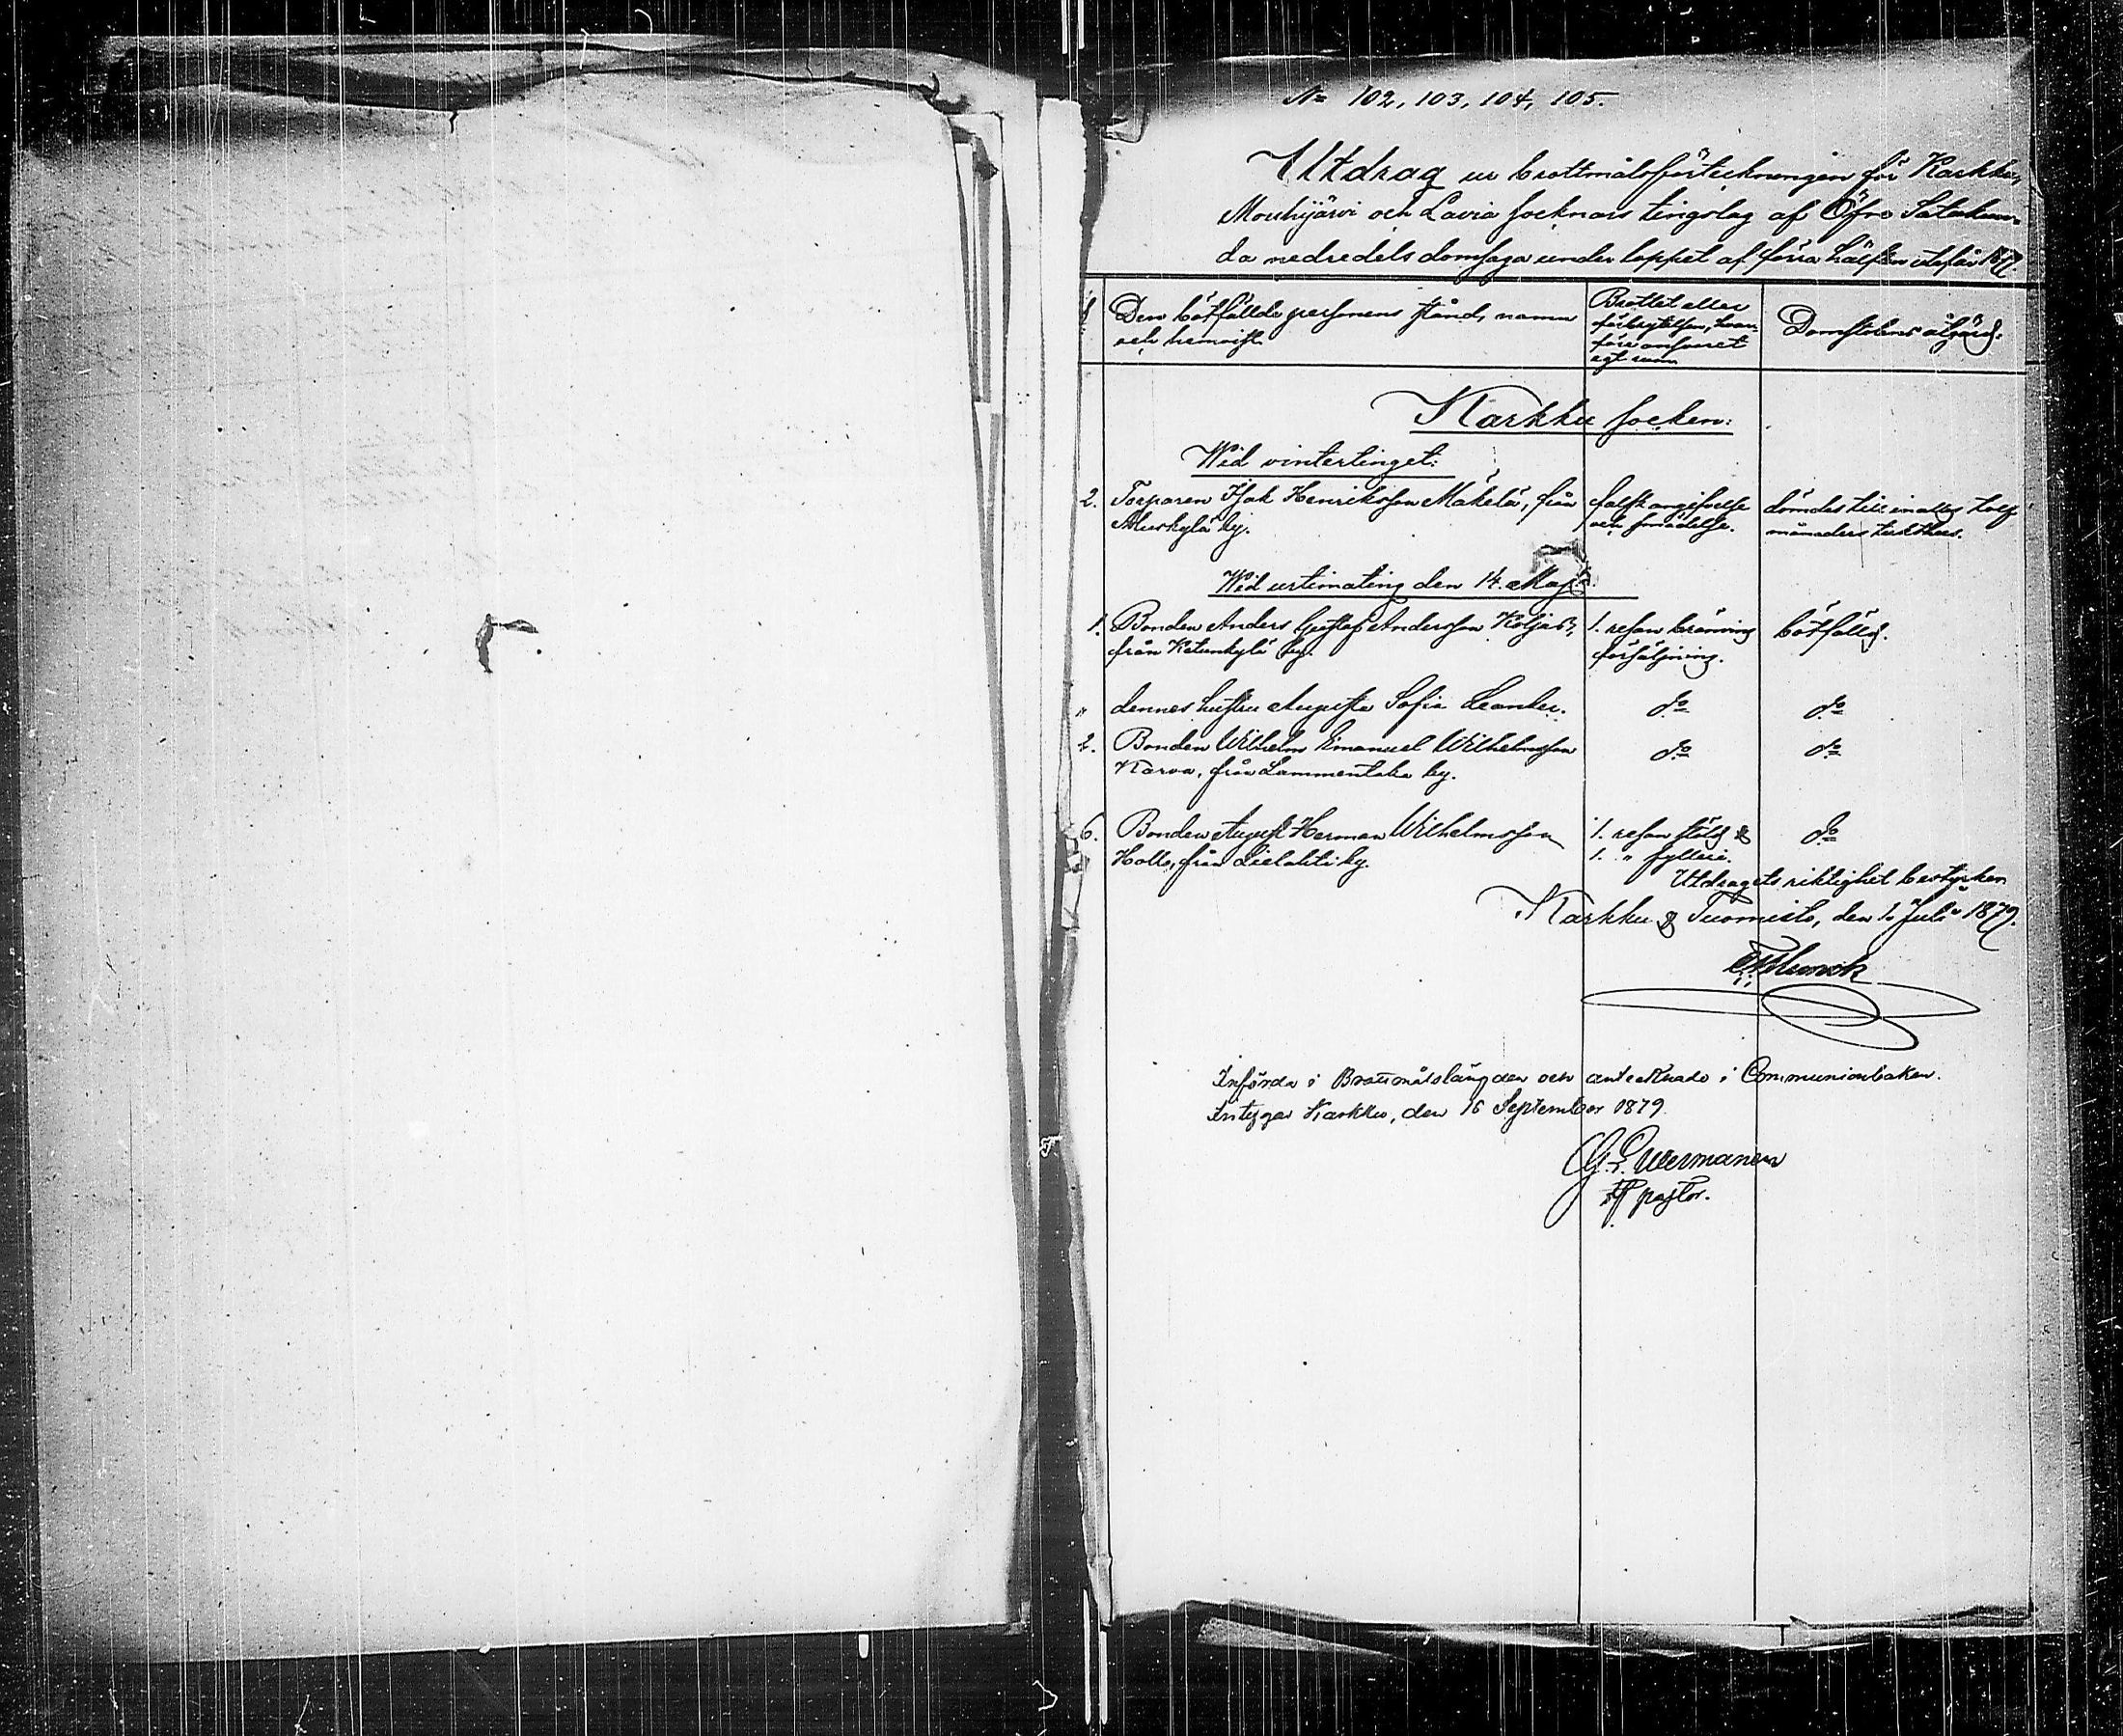 No 102, 103, 104, 105.
Utdrag ur brottmålsförteckningen för Karkku,
Mouhijärvi och Lavia socknars tingslag af Öfre Satakun-
da nedredels domsaga under loppet af förra hälften utaf år 1879.
§
Den bötfällde personens stånd, namn
och hemvist
Brottet eller
förbrytelsen, hvar-
före ansvaret
egt rum
Domstolens åtgärd.
Karkku socken:
Wid vintertinget:
2. Torparen Isak Henriksson Mäkelä, från
by.
falsk angifvelse
och smädelse.
dömdes till inalles tolf
månaders tukthus.
Wid urtimating den 14. Maj
1. Bonden Anders Gustaf Andersson Kolja
från Kutunkylä by.
1. resan bränvins
försäljning.
bötfälld.
" dennes hustru Augusta Sofia Leander.
do
do
2. Bonden Wilhelm Emanuel Wilhelmsson
Karva, från Lammentaka by.
do
do
6. Bonden August Herman Wilhelmsson
Hollo, från Lielahti by.
1. resan stöld &
1. " fylleri.
do
Utdragets riktighet bestyrker
Karkku & Tuomisto, den 1. Juli 1879.
Införda i Brottmålslängden och antecknade i Communionboken.
Intygar Karkku, den 16 September 1879.
pastor.